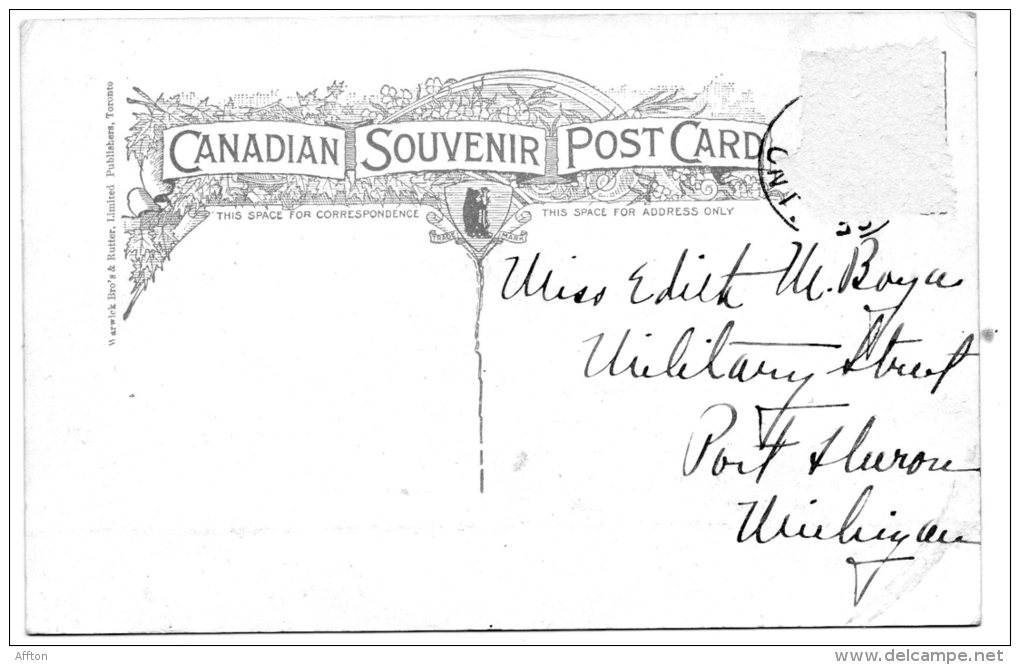 Warwick Bro's & Rutter, Limited Publishers, Toronto
CANADIAN SOUVENIR POST CARD
THIS SPACE FOR CORRESPONDENCE
THIS SPACE FOR ADDRESS ONLY
TRADE MARK
ONT.
Miss Edith M. Boyce
Military Street
Port Huron
Michigan
Affton
www.delcampe.net